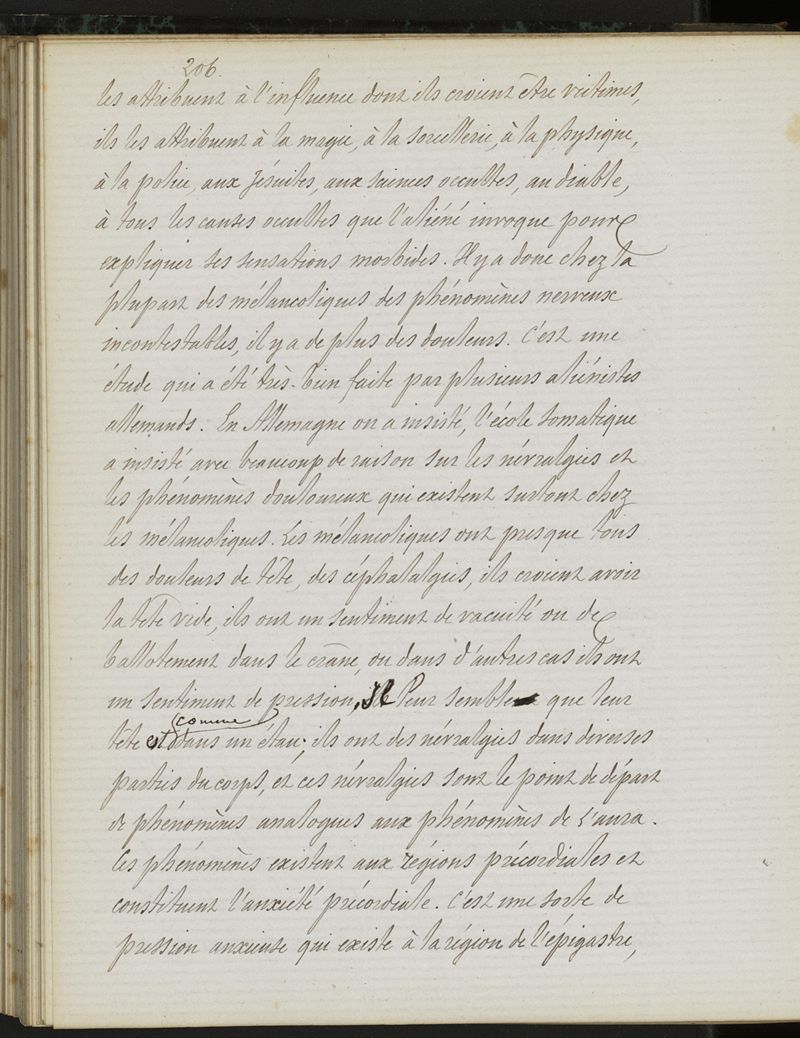 206.
les attribuent à l'influence dont ils croient être victimes,
ils les attribuent à la magie, à la sorcellerie, à la physique,
à la police, aux Jésuites, aux sciences occultes, au diable,
à tous les causes occultes que l'aliéné invoque pour
expliquer ses sensations morbides. Il y a donc chez la
plupart des mélancoliques des phénomènes nerveux
incontestables, il y a de plus des douleurs. C'est une
étude qui a été très-bien faite par plusieurs aliénistes
allemands. En Allemagne on a insisté, l'école somatique
a insisté avec beaucoup de raison sur les névralgies et
les phénomènes douloureux qui existent surtout chez
les mélancoliques. Les mélancoliques ont presque tous
des douleurs de tête, des céphalalgies, ils croient avoir
la tête vide, ils ont un sentiment de vacuité ou de
ballotement dans le crâne, ou dans d'autres cas ils ont
un sentiment de pression, Il leur semble que leur
comme
tête est dans un étau; ils ont des névralgies dans diverses
parties du corps, et ces névralgies sont le point de départ
de phénomènes analogues aux phénomènes de l'aura.
Ces phénomènes existent aux régions précordiales et
constituent l'anxiété précordiale. C'est une sorte de
pression anxieuse qui existe à la région de l'épigastre,